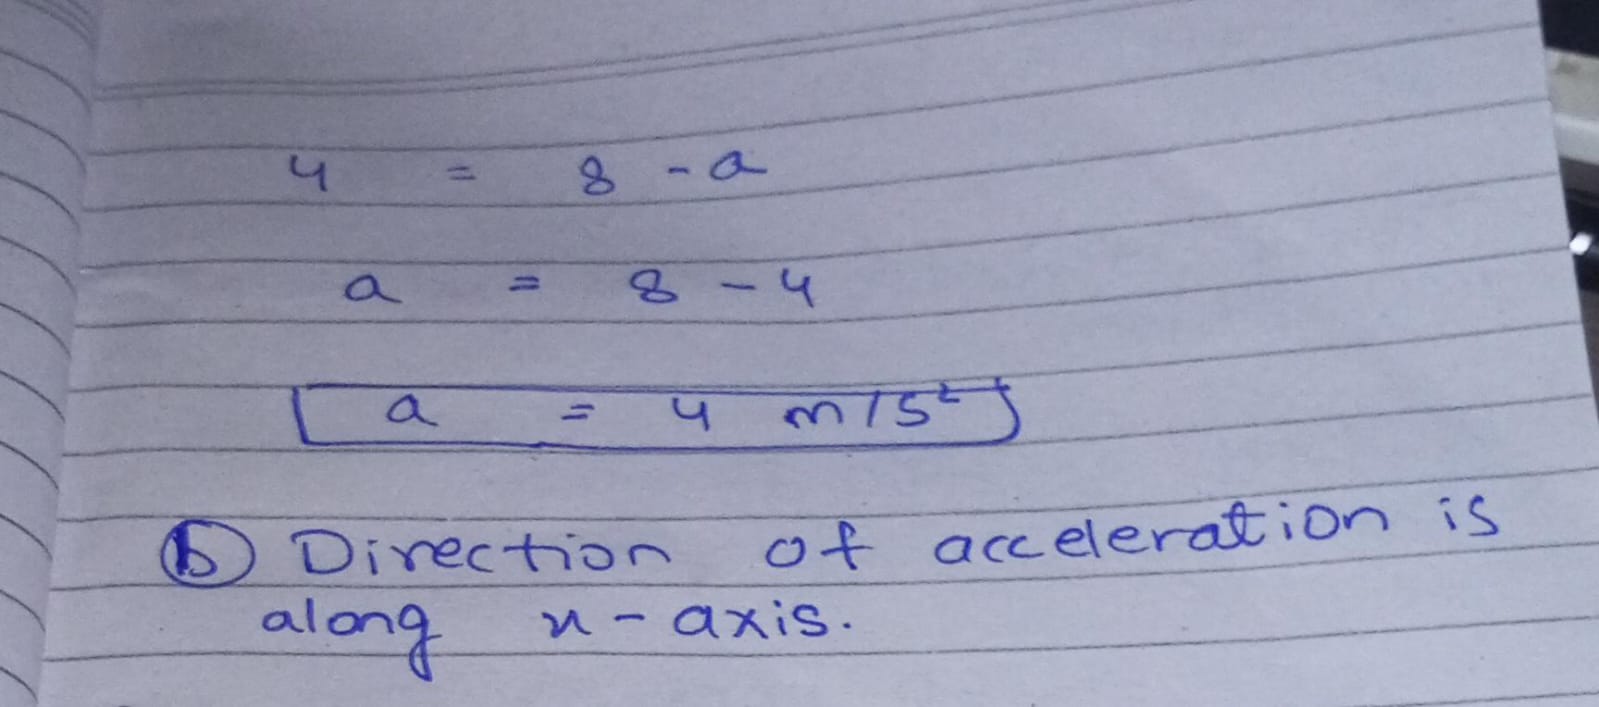 4 = 8 - a
a = 8 - 4
a = 4 m/s²
(b) Direction of acceleration is
along x-axis.